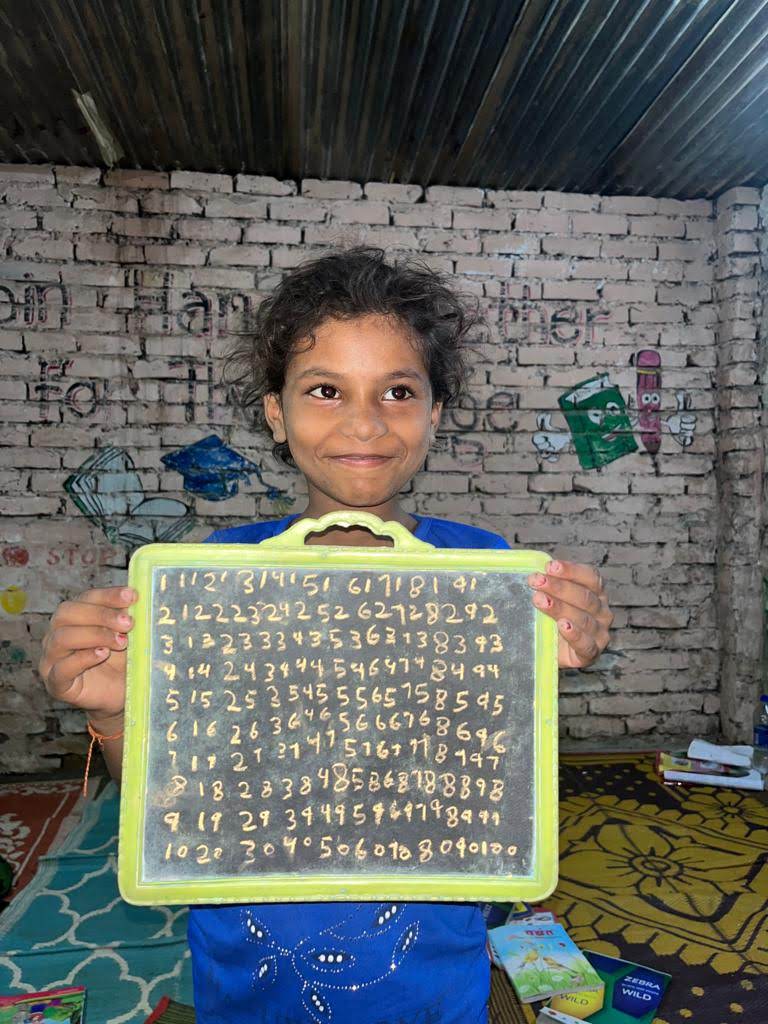 oin Han ther
For Th ge
STOP
1 11 21 31 41 51 61 71 81 91
2 12 22 32 42 52 62 72 82 92
3 13 23 33 43 53 63 73 83 93
4 14 24 34 44 54 64 74 84 94
5 15 25 35 45 55 65 75 85 95
6 16 26 36 46 56 66 76 86 96
7 17 27 37 47 57 67 77 87 97
8 18 28 38 48 58 68 78 88 98
9 19 29 39 49 59 69 79 89 99
10 20 30 40 50 60 70 80 90 100
ZEBRA
WILD
WILD